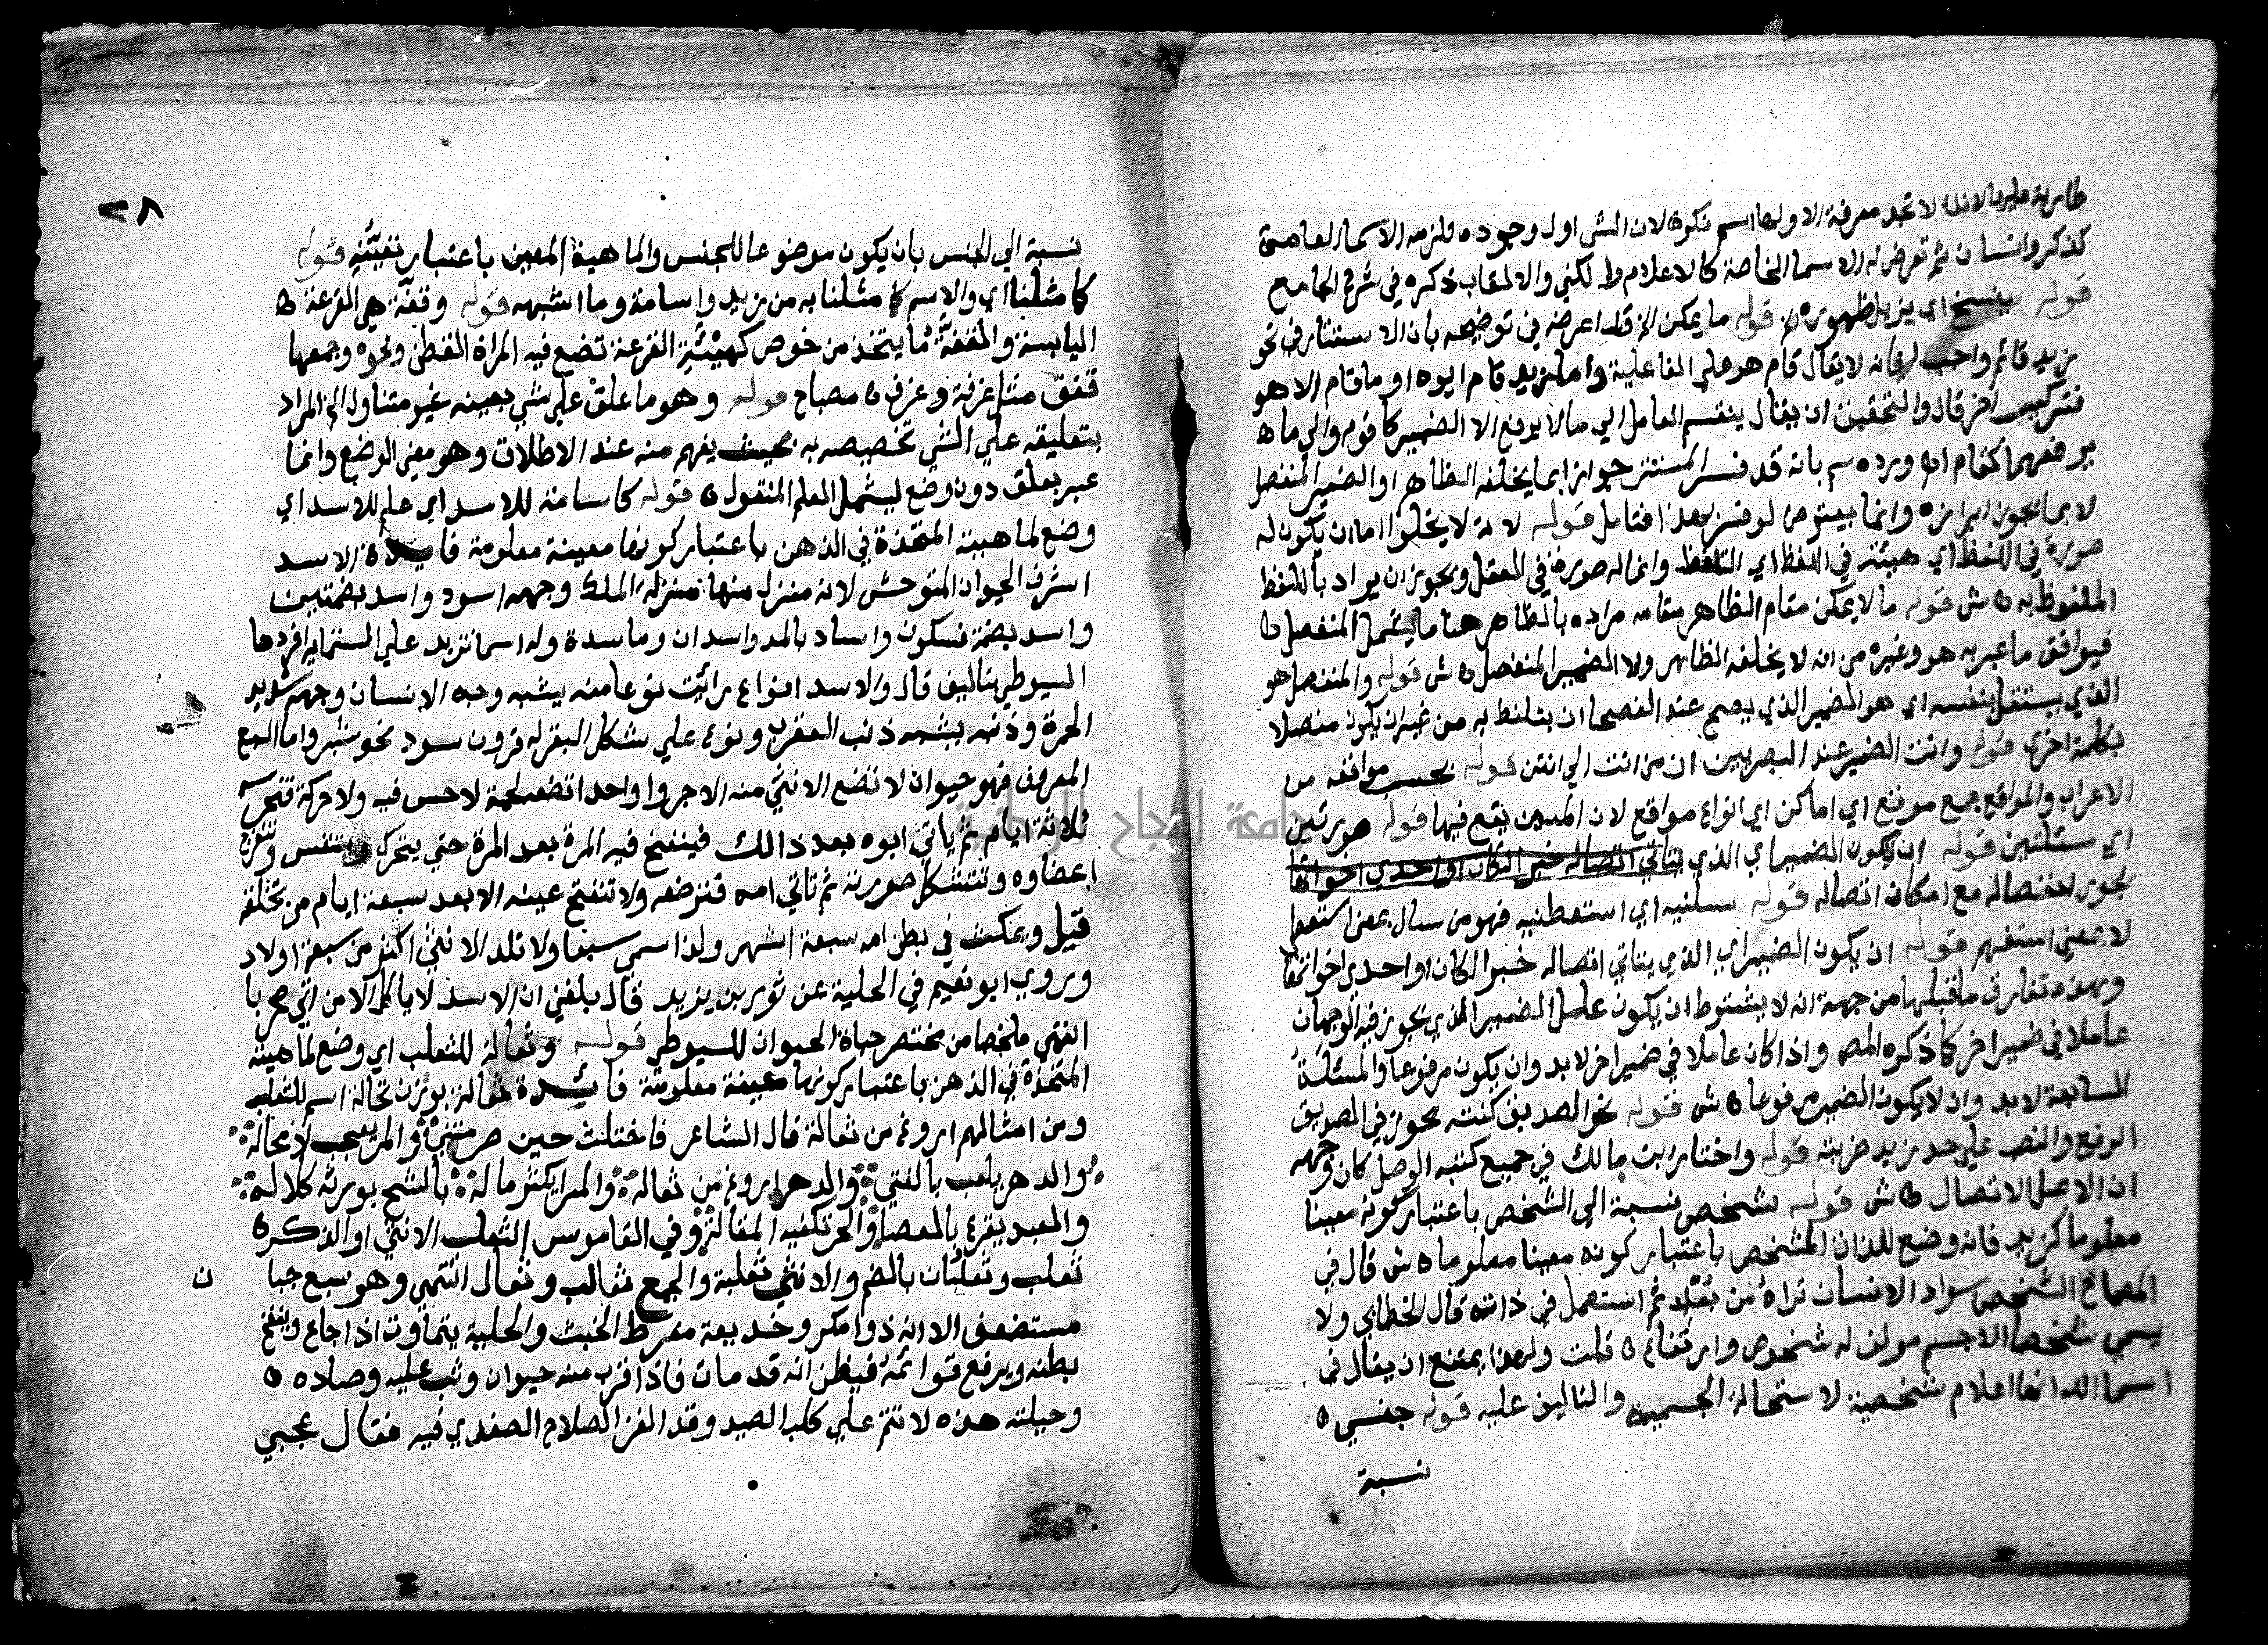 طارية عليها لانك لا تجد معرفة الا ولها اسم نكرة لان الشي اول وجوده تلزمه الاسما العامة
كذكر وانسان ثم تعرض له الاسما الخاصة كالاعلام والكني والالقاب ذكره في شرح الجامع
قوله ينسخ اي يزيل ظهوره قوله ما يمكن الخ قد اعرضه في توضيحه بان الاستتار في نحو
زيد قائم واجب فانه لا يقال قام هو علي الفاعلية واما زيد قام ابوه او ما قام الا هو
فتركيب اخر قال والتحقيق ان يقال ينقسم العامل الي ما لا يرفع الا الضمير كاقوم والي ما
يرفعهما كقام اه ورده سم بانه قد فسر المستتر جوازا بما يخلفه الظاهر او الضمير المنفصل
لا بما يجوز ابرازه وانما يعترض لو فسر بهذا فتامل قوله لانه لا يخلوا اما ان يكون له
صورة في اللفظ اي هيئة في اللفظ اي التلفظ وانما له صورة في العقل ويجوز ان يراد باللفظ
الملفوظ به ه ش قوله ما لا يمكن مقام الظاهر مقامه مراده بالظاهر هنا ما يشمل المنفصل
فيوافق ما عبر به هو وغيره من انه لا يخلفه الظاهر ولا الضمير المنفصل ه ش قوله والمنفصل هو
الذي يستقل بنفسه اي هو الضمير الذي يصح عند الفصحا ان يتلفظ به من غير ان يكون متصلا
بكلمة اخري قوله وانت الضمير عند البصريين ان من انت الي انتن قوله بحسب مواقعه من
الاعراب والمواقع جمع موقع اي اماكن اي انواع مواقع لان المبين يقع فيها قوله صورتين
اي مسئلتين قوله ان يكون الضمير اي الذي يتاتي اتصاله خبر الكان او احدي اخواتها
يجوز انفصاله مع امكان اتصاله قوله سلنيه اي استعطنيه فهو من سال بمعني استعطي
لا بمعني استفهم قوله ان يكون الضمير اي الذي يتاتي اتصاله خبرا لكان او احدي اخواتها
وبهذه تفارق ما قبلها من جهة انه لا يشترط ان يكون عامل الضمير الذي يجوز فيه الوجهان
عاملا في ضمير اخر كما ذكره المص واذا كان عاملا في ضمير اخر لا بد وان يكون مرفوعا والمسئلة
السابعة لا بد وان لا يكون الضمير مرفوعا ه ش قوله نحو الصديق كنته يجوز في الصديق
الرفع والنصب علي حد زيد ضربته قوله واختار ابن مالك في جميع كتبه الوصل كان وجهه
ان الاصل الاتصال ه ش قوله شخص نسبة الي الشخص باعتبار كونه معينا
معلوما كزيد فانه وضع للذات المشخص باعتبار كونه معينا معلوما ه ش قال في
المصباح الشخص سواد الانسان تراه من بعد ثم استعمل في ذاته قال الخطابي ولا
يسمي شخصا الا جسم مولف له شخوص وارتفاع ه قلت ولهذا يمتنع ان يقال في
اسما الله انها اعلام شخصية لاستحالة الجسمية والتاليف عليه قوله جنسي ه
نسبة
٢٨
نسبة الي الجنس بان يكون موضوعا للجنس والماهية المعين باعتبار تعينه قوله
كما مثلنا اي والاسم كما مثلنا به من زيد واسامة وما اشبهه قوله وقفة هي القرعة
اليابسة والقفة ما يتخذ من خوص كهيئة القرعة تضع فيه المراة القطن ونحوه وجمعها
قفف مثل غرفة وغرف ه مصباح قوله وهو ما علق علي شي بعينه غير متناول الخ المراد
بتعليقه علي الشي تخصيصه به بحيث يفهم منه عند الاطلاق وهو معني الوضع وانما
عبر بعلق دون وضع ليشمل العلم المنقول ه قوله كاسامة للاسد اي علم للاسد اي
وضع لماهيته المتحدة في الذهن باعتبار كونها معينة معلومة فايدة الاسد
اشرف الحيوان المتوحش لانه منزل منها منزلة الملك وجمعه اسود واسد بضمتين
واسد بضمة فسكون واساد بالمد واسدان وماسدة وله اسما تزيد علي الستماية افردها
السيوطي بتاليف قال والاسد انواع رائيت نوعا منه يشبه وجه الانسان وجهه شديد
الحمرة وذنبه يشبه ذنب العقرب ونوع علي شكل البقر له قرون سود نحو شبر واما السبع
المعروف فهو حيوان لا تضع الانثي منه الا جروا واحدا تضعه لحمة لا حس فيه ولا حركة فتحرسه
ثلاثة ايام ثم ياتي ابوه بعد ذالك فينفخ فيه المرة بعد المرة حتي يتحرك ويتنفس وتنفرج
اعضاوه وتتشكل صورته ثم تاتي امه فترضعه ولا تنفتح عينه الا بعد سبعة ايام من تخلقه
قيل ويمكث في بطن امه سبعة اشهر ولذا سمي سبعا ولا تلد الانثي اكثر من سبعة اولاد
وروي ابو نعيم في الحلية عن ثور بن يزيد قال بلغني ان الاسد لا ياكل الا من اتي محرما
انتهي ملخصا من مختصر حياة الحيوان للسيوطي قوله وثعالة للثعلب اي وضع لماهيته
المتحدة في الذهن باعتبار كونها معينة معلومة فائدة ثعالة بوزن نخالة اسم للثعلب
ومن امثالهم اروغ من ثعالة قال الشاعر فاختلت حين صرمتني والمر يعجب لا محالة
والدهر يلعب بالفتي والدهر اروغ من ثعالة والمر يكثر ماله بالشح يورثه كلاله
والعبد يقرع بالعصا والحر تكفيه المقالة وفي القاموس الثعلب الانثي او الذكر
ثعلب وثعلبان بالضم والانثي ثعلبة والجمع ثعالب وثعال انتهي وهو سبع جبا
ن
مستضعف الا انه ذو امكر وخديعة مفرط الخبث والحلية يتماوت اذا جاع وينفخ
بطنه ويرفع قوائمه فيظن انه قد مات فاذا قرب منه حيوان وثب عليه وصاده ه
وحيلته هذه لا تتم علي كلب الصيد وقد الغز الصلاح الصفدي فيه فقال عجبي